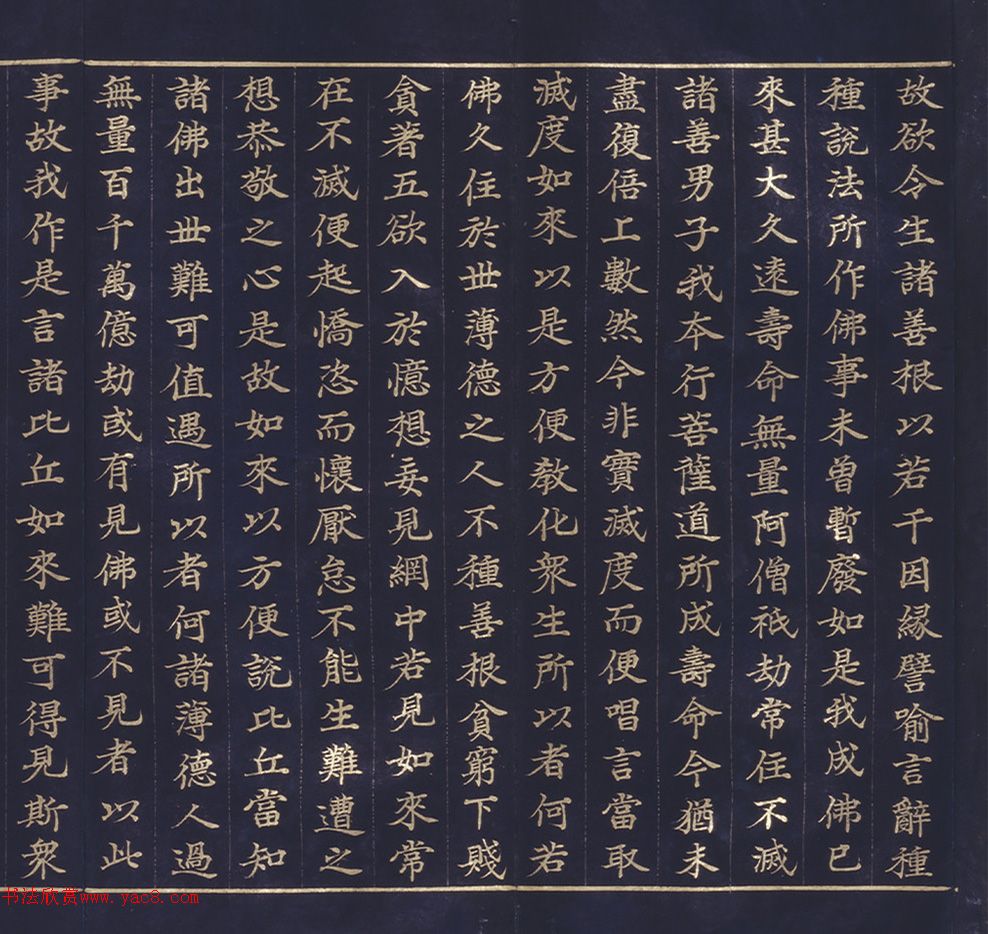 故欲令生諸善根以若干因縁譬喻言辭種
種說法所作佛事未曾暫廢如是我成佛已
來甚大久遠壽命無量阿僧祇劫常住不滅
諸善男子我本行菩薩道所成壽命今猶未
盡復倍上數然今非實滅度而便唱言當取
滅度如來以是方便教化衆生所以者何若
佛久住於世薄德之人不種善根貧窮下賤
貪著五欲入於憶想妄見網中若見如來常
在不滅便起憍恣而懷厭怠不能生難遭之
想恭敬之心是故如來以方便說比丘當知
諸佛出世難可值遇所以者何諸薄德人過
無量百千萬億劫或有見佛或不見者以此
事故我作是言諸比丘如來難可得見斯衆
书法欣赏www.yac8.com